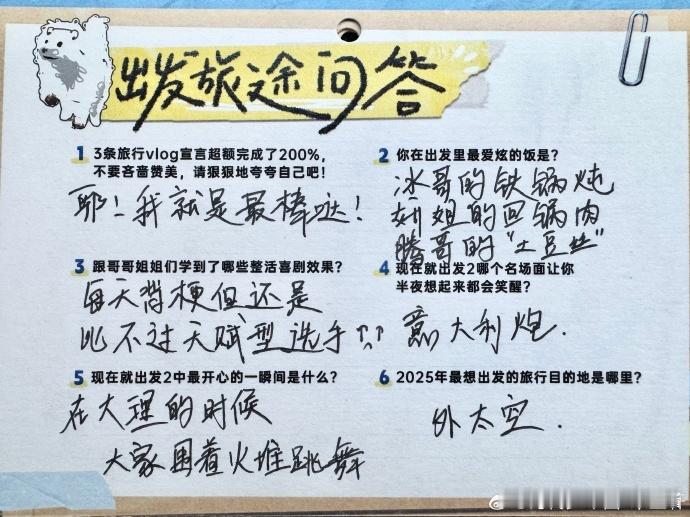 出发旅途问答
1 3条旅行vlog宣言超额完成了200%,
不要吝啬赞美,请狠狠地夸夸自己吧!
耶!我就是最棒哒!
2 你在出发里最爱炫的饭是?
冰哥的铁锅炖
妍姐的回锅肉
腾哥的“土豆丝”
3 跟哥哥姐姐们学到了哪些整活喜剧效果?
每天背梗但还是
比不过天赋型选手↑↑
4 现在就出发2哪个名场面让你
半夜想起来都会笑醒?
意大利炮.
5 现在就出发2中最开心的一瞬间是什么?
在大理的时候
大家围着火堆跳舞
6 2025年最想出发的旅行目的地是哪里?
外太空.